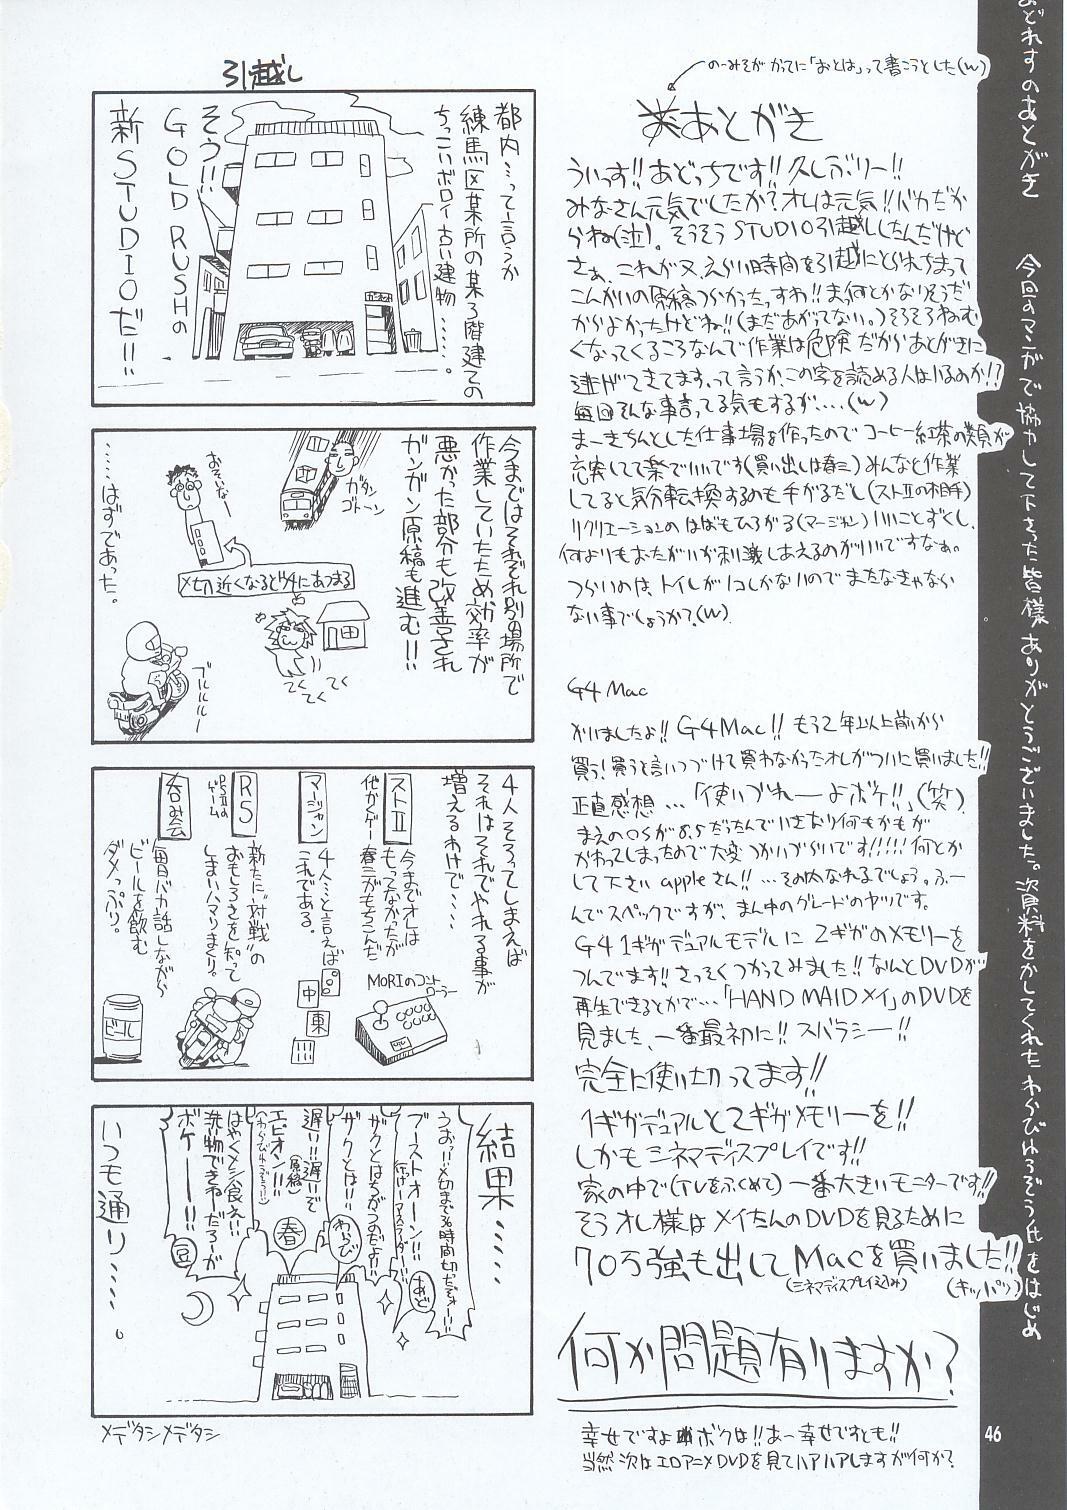 あどれすのあとがき　今回のマンガで協力して下さった皆様ありがとうございました。資料をかしてくれたわらびもちぞう氏をはじめ
のーみそが かってに「おとは」って書こうとした(w)
あとがき
ういっす!!あどっちです!!久しぶりー!!
みなさん元気でしたか?オレは元気!!バカだか
らね(泣)。そうそうSTUDIO引越ししたんだけど
さぁ、これが又、えらい時間を引越にとられちまって
こんかいの原稿つらかったっすわ!!まぁ何とかなりそうだ
からよかったけどね!!(まだあがってない。)そろそろねむ
くなってくるころなんで作業は危険だからあとがきに
逃げてきてます。って言うか、この字を読める人はいるのか!?
毎回そんな事言ってる気もするが....(w)
まーきちんとした仕事場を作ったのでコーヒー紅茶の類が
充実してて楽でいいです(買い出しは春三)みんなと作業
してると気分転換するのも手がるだし(ストⅡの相手)
リクリエーションのはばもひろがる(マージャン)いいことずくし、
何よりもおたがいが刺激しあえるのがいいですなぁ。
つらいのは、トイレが1コしかないのでまたなきゃなら
ない事でしょうか?(w)
G4 Mac
かいましたよ!!G4Mac!!もう2年以上前から
買う!買うと言いつづけて買わなかったオレがついに買いました!!
正直感想…「使いづれーよボケ!!」(笑)
まえのOSが8.5だったんでいきなり何もかもが
かわってしまったので大変つかいづらいです!!!!!何とか
して下さいappleさん!!…その内なれるでしょう。ふー
んでスペックですが、まん中のグレードのヤツです。
G4 1ギガデュアルモデルに2ギガのメモリーを
つんでます!!さっそくつかってみました!!なんとDVDが
再生できるとかで…「HAND MAID メイ」のDVDを
見ました、一番最初に!!スバラシー!!
完全に使い切ってます!!
1ギガデュアルと2ギガメモリーを!!
しかもシネマディスプレイです!!
家の中で(TVをふくめて)一番大きいモニターです!!
そうオレ様はメイたんのDVDを見るために
70万強も出してMacを買いました!!
(シネマディスプレイ込み)
(キッパリ)
何か問題有りますか?
幸せですよボクは!!あー幸せですとも!!
当然次はエロアニメDVDを見てハアハアしますが何か?
46
引越し
都内…って言うか
練馬区某所の某3階建ての
ちっこいボロイ古い建物……。
そう!!
GOLD RUSHの
新STUDIOだ!!
今まではそれぞれ別の場所で
作業していたため効率が
悪かった部分も改善され
ガンガン原稿も進む!!
ガタン
ゴトーン
おそいなー
〆切近くなるとウチにあつまる
てくてくてくてく
ブルルルルー
……はずであった。
4人そろってしまえば
それはそれでやれる事が
増えるわけで……
ストⅡ
他かくゲー
今までオレは
もってなかったが
春三がもちこんだ
MORIのコントローラー
マージャン
4人…と言えば
これである。
中
東
RS
PSⅡのゲーム
新たに"対戦"の
おもしろさを知って
しまいハマりまくり。
呑み会
毎日バカ話しながら
ビールを飲む
ダメっぷり。
ビール
結果……
うおー!!〆切まで36時間切ったぞォー!!
あど
ブーストオーン!!
ザクとはちがうのだよ!!
ザクとは!!
わらび
遅い!!遅いぞ
(原稿)
エピオン!!
春
はやくメシ食え!!
洗い物できねーだろーが
ボケーー!!
豆
いつも通り……。
メデタシメデタシ